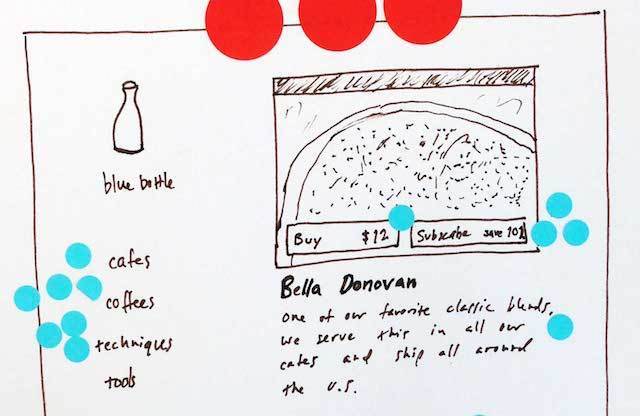 blue bottle
cafes
coffees
techniques
tools
Buy $12
Subscribe save 10%
Bella Donovan
one of our favorite classic blends.
we serve this in all our
cafes and ship all around
the U.S.